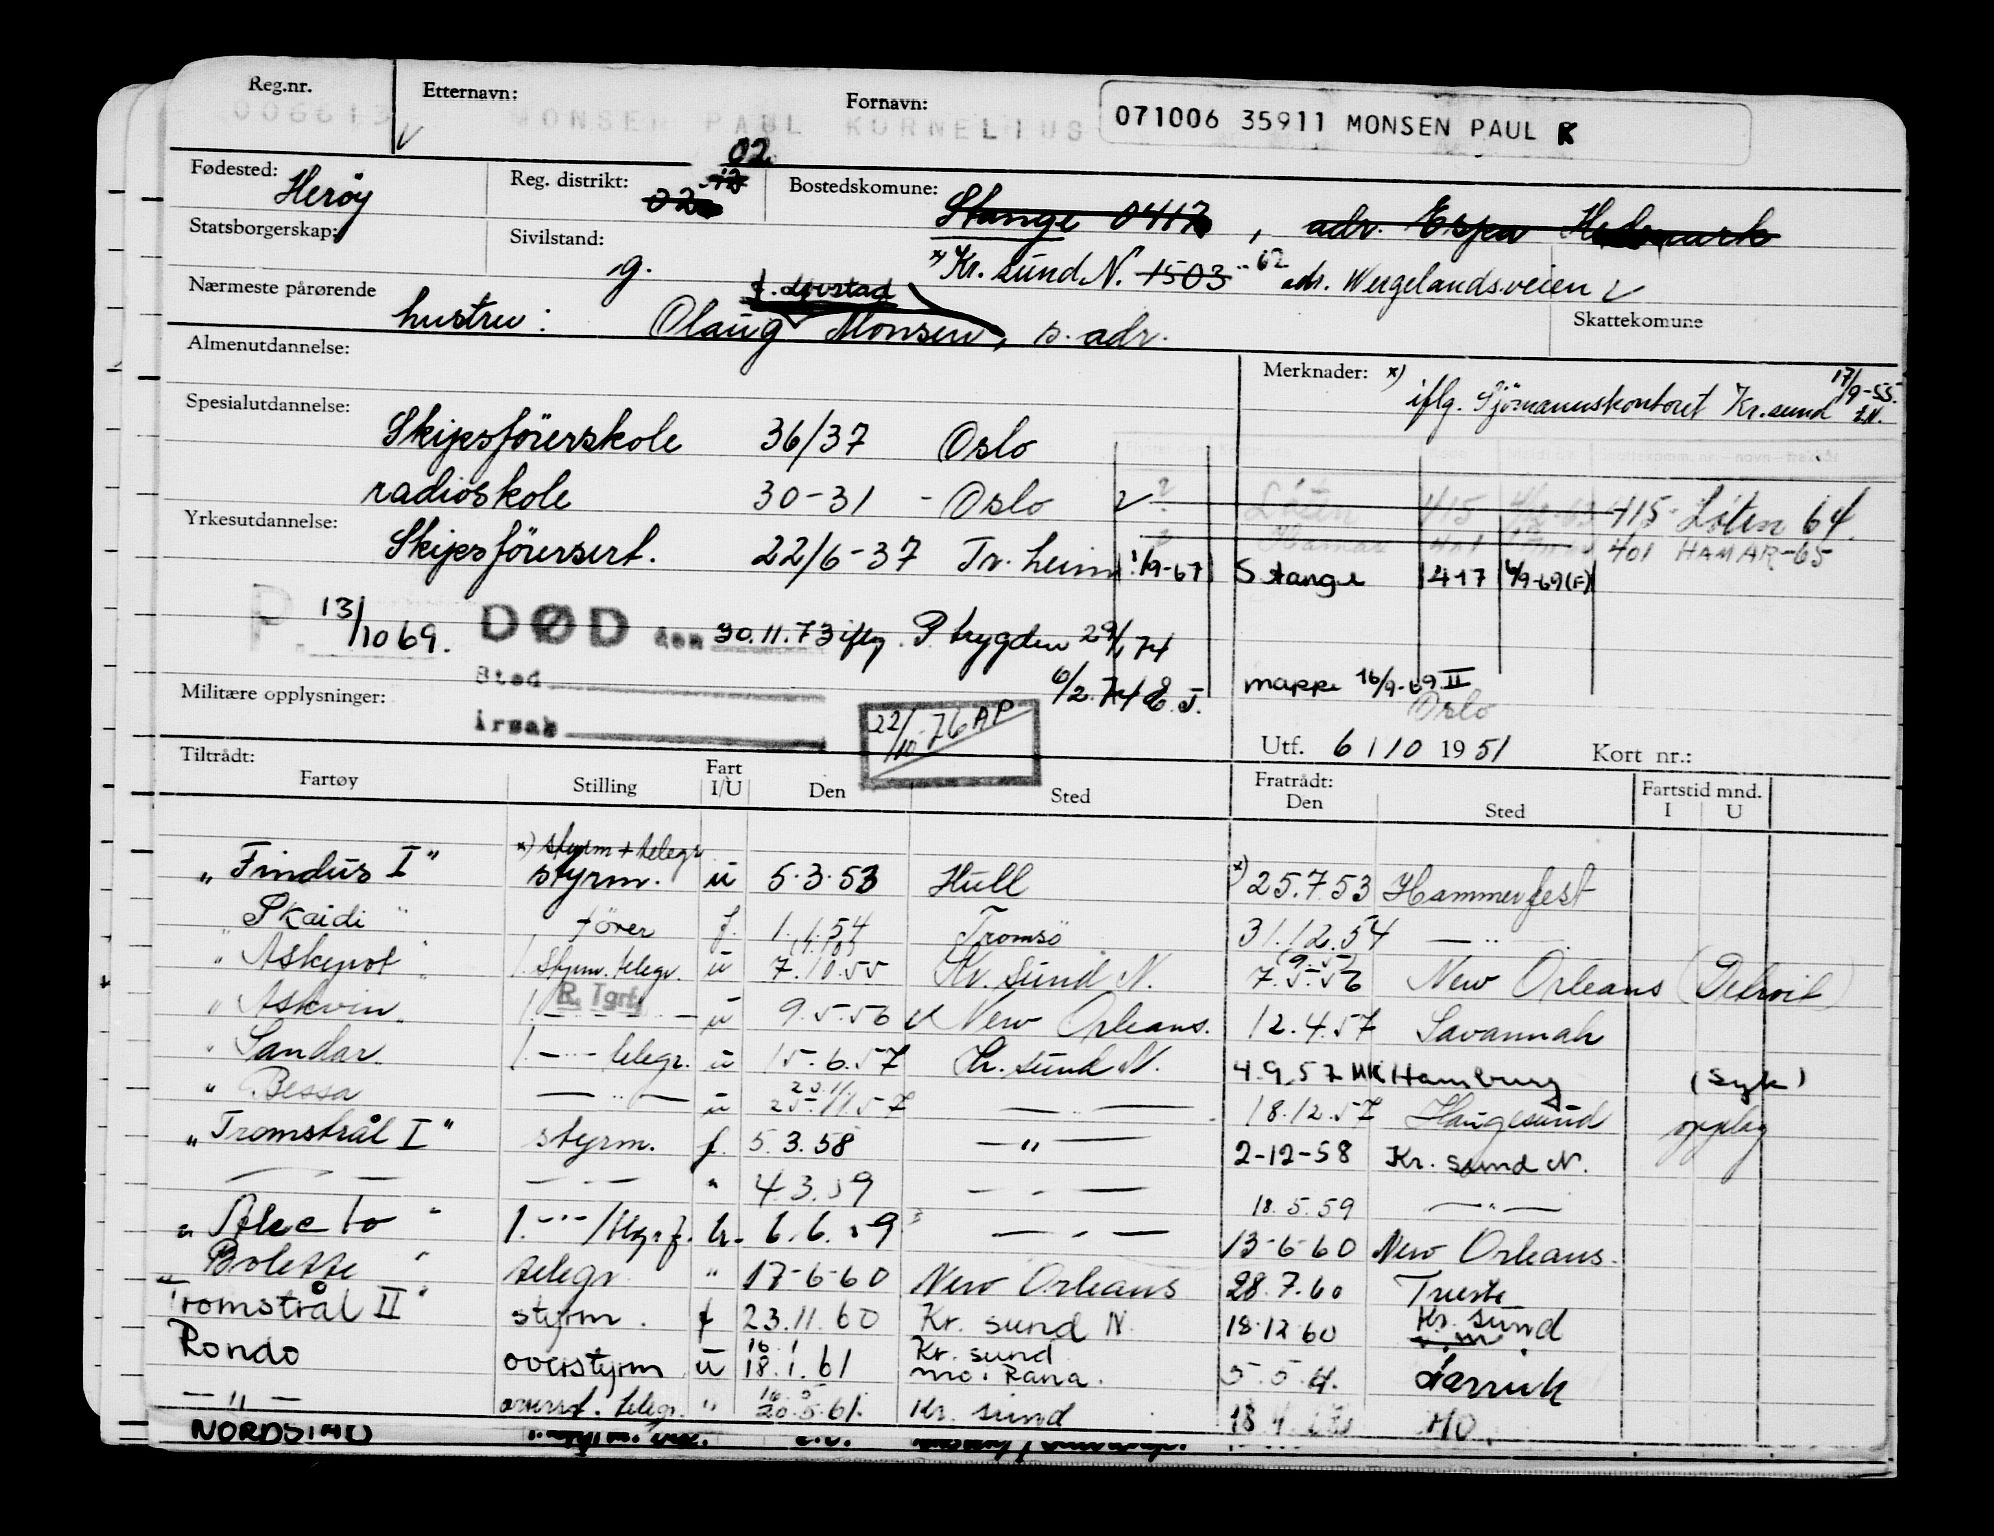 Reg.nr. Etternavn: Fornavn: 071006 35911 MONSEN PAUL K
006613 MONSEN PAUL KORNELIUS
Fødested: Herøy Reg. distrikt: 02 Bostedskomune: Stange 0417, adr. Espa Hedmark
Statsborgerskap: Sivilstand: g. x) Kr. sund N. 1503 62 adr. Wergelandsveien
Nærmeste pårørende hustru: Olaug Monsen, s. adr. f. Løvstad Skattekomune
Almenutdannelse: Merknader: x) iflg. Sjömannskontoret Kr.sund 17/9-55.
Spesialutdannelse: Skipsförerskole 36/37 Oslo
radioskole 30-31 - Oslo Löten 415 415 Löten 64
Yrkesutdannelse: Hamar 401 401 HAMAR-65
Skipsförersert. 22/6-37 Tr. heim 1/9-67 Stange 417 4/9-69(F)
P. 13/10 69. DØD den 30.11.73 iflg. P. trygden 29/1 74
Sted 6/2.74 E.J. mappe 16/9-69 II
Militære opplysninger: Årsak 22/10-76 AP Oslo
Utf. 6/10 1951 Kort nr.:
Tiltrådt: Fartøy Stilling Fart I/U Den Sted Fratrådt: Den Sted Fartstid mnd. I U
x) styrm + telegr
"Findus I" styrm. u 5.3.53 Hull x) 25.7.53 Hammerfest
"Skaidi" förer f. 1.1.54 Tromsö 31.12.54 — " —
"Askepot" 1. styrm. telegr. u 7.10.55 Kr. sund N. 7.5.56 New Orleans (Detroit)
"Askvin" 1. — " — R. Tgrf. u 9.5.56 New Orleans. 12.4.57 Savannah
"Sandar 1. — " — telegr. u 15.6.57 Kr. sund N. 4.9.57 HK Hamburg (syk)
" Bessa — " — u 25.11.57 — " — 18.12.57 Haugesund opplag
"Tromstrål I" styrm. f. 5.3.58 — " — 2-12-58 Kr. sund N.
— — — — " 4.3.59 — " — 18.5.59 — " —
"Alecto" 1. — " — /tlgrf. u. 6.6.59 — " — 13-6-60 New Orleans.
Bolette " telegr. " 17-6-60 New Orleans 28.7.60 Trieste
"Tromstrål II" styrm. f 23.11.60 Kr. sund N. 18.12.60 Kr. sund
Rondo overstyrm u 16.1 18.1.61 Kr. sund mo i Rana. 5.5.61. Larvik
— " — overst. telegr. " 20.5.61. Kr. sund 18.4. MO.
NORDSIMO